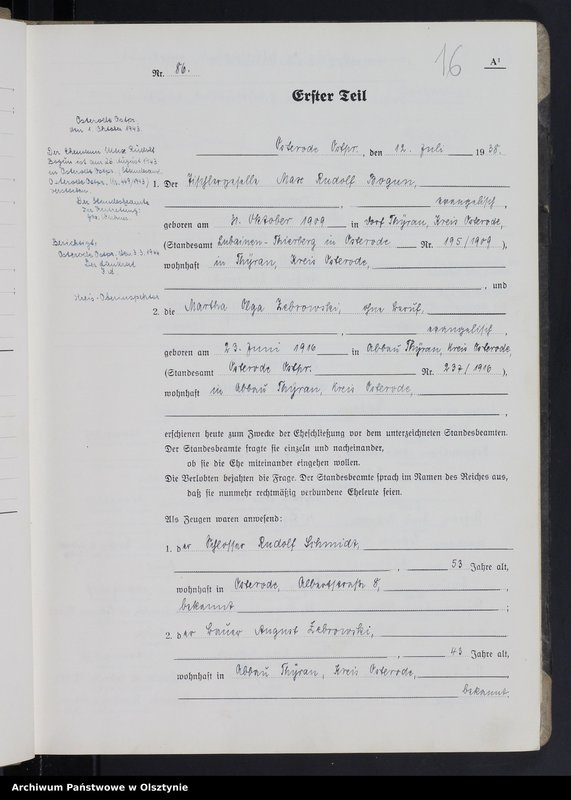 16
A¹
Nr. 86.
Erster Teil
Osterode Ostpr., den 12. Juli 1938.
Osterode Ostpr.
den 1. Oktober 1943.
Der Ehemann Max Rudolf
Bogun ist am 28. August 1943
in Osterode Ostpr. (Standesamt
Osterode Ostpr. Nr. /1943)
verstorben.
Der Standesbeamte
Berichtigt:
Osterode Ostpr. den 3.3.1944
Der Landrat
Kreis-Oberinspektor
1. Der Tischlergeselle Max Rudolf Bogun,
, evangelisch,
geboren am Oktober 1909 in Dorf Thyrau, Kreis Osterode,
(Standesamt Lubainen-Thierberg in Osterode Nr. 195/1909),
wohnhaft in Thyrau, Kreis Osterode,
, und
2. die Martha Olga Zebrowski, ohne Beruf,
, evangelisch,
geboren am 23. Juni 1916 in Abbau Thyrau, Kreis Osterode,
(Standesamt Osterode Ostpr. Nr. 237/1916),
wohnhaft in Abbau Thyrau, Kreis Osterode,
,
erschienen heute zum Zwecke der Eheschließung vor dem unterzeichneten Standesbeamten.
Der Standesbeamte fragte sie einzeln und nacheinander,
ob sie die Ehe miteinander eingehen wollen.
Die Verlobten bejahten die Frage. Der Standesbeamte sprach im Namen des Reiches aus,
daß sie nunmehr rechtmäßig verbundene Eheleute seien.
Als Zeugen waren anwesend:
1. der Schlosser Rudolf Schmidt,
, 53 Jahre alt,
wohnhaft in Osterode, Albertstraße 8,
bekannt ;
2. der Bauer August Zebrowski,
, 43 Jahre alt,
wohnhaft in Abbau Thyrau, Kreis Osterode,
bekannt.
Archiwum Państwowe w Olsztynie